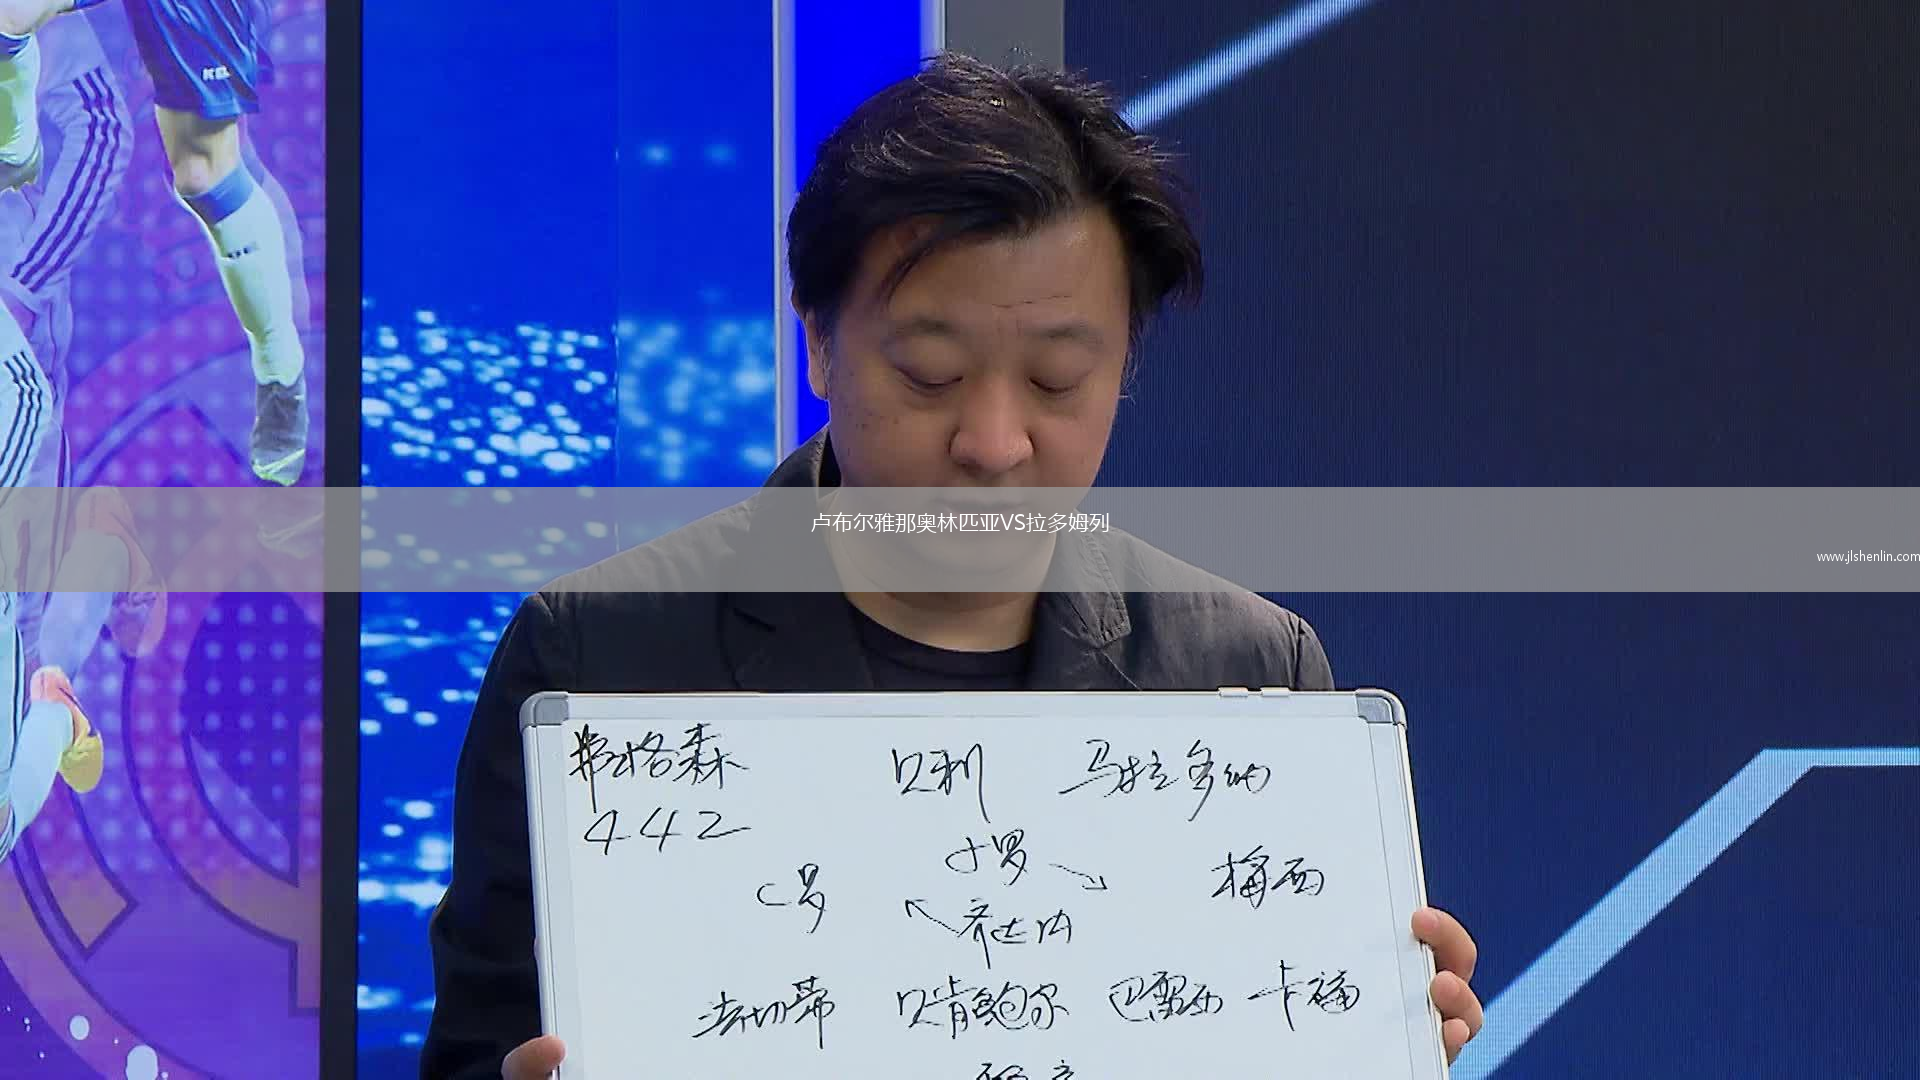 KEL
卢布尔雅那奥林匹亚VS拉多姆列
www.jlshenlin.com
弗格森 贝利 马拉多纳
442
小罗
C罗 梅西
齐达内
法切蒂 贝肯鲍尔 巴雷西 卡福